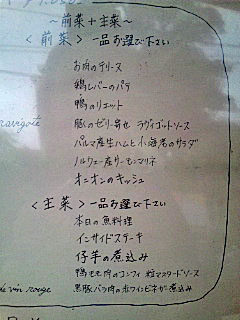 ～前菜＋主菜～
＜前菜＞一品お選び下さい
お肉のテリーヌ
鶏レバーのパテ
鴨のリエット
豚のゼリー寄せ ラヴィゴットソース
パルマ産生ハムと小海老のサラダ
ノルウェー産サーモンマリネ
オニオンのキッシュ
＜主菜＞一品お選び下さい
本日の魚料理
インサイドステーキ
仔羊の煮込み
鴨もも肉のコンフィ 粒マスタードソース
黒豚バラ肉の赤ワインビネガー煮込み
ravigote
de vin rouge